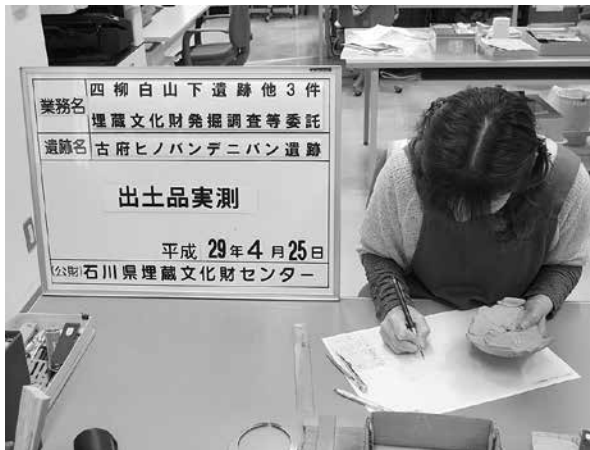 業務名 四柳白山下遺跡他3件
埋蔵文化財発掘調査等委託
遺跡名 古府ヒノバンデニバン遺跡
出土品実測
平成 29年4月25日
(公財)石川県埋蔵文化財センター